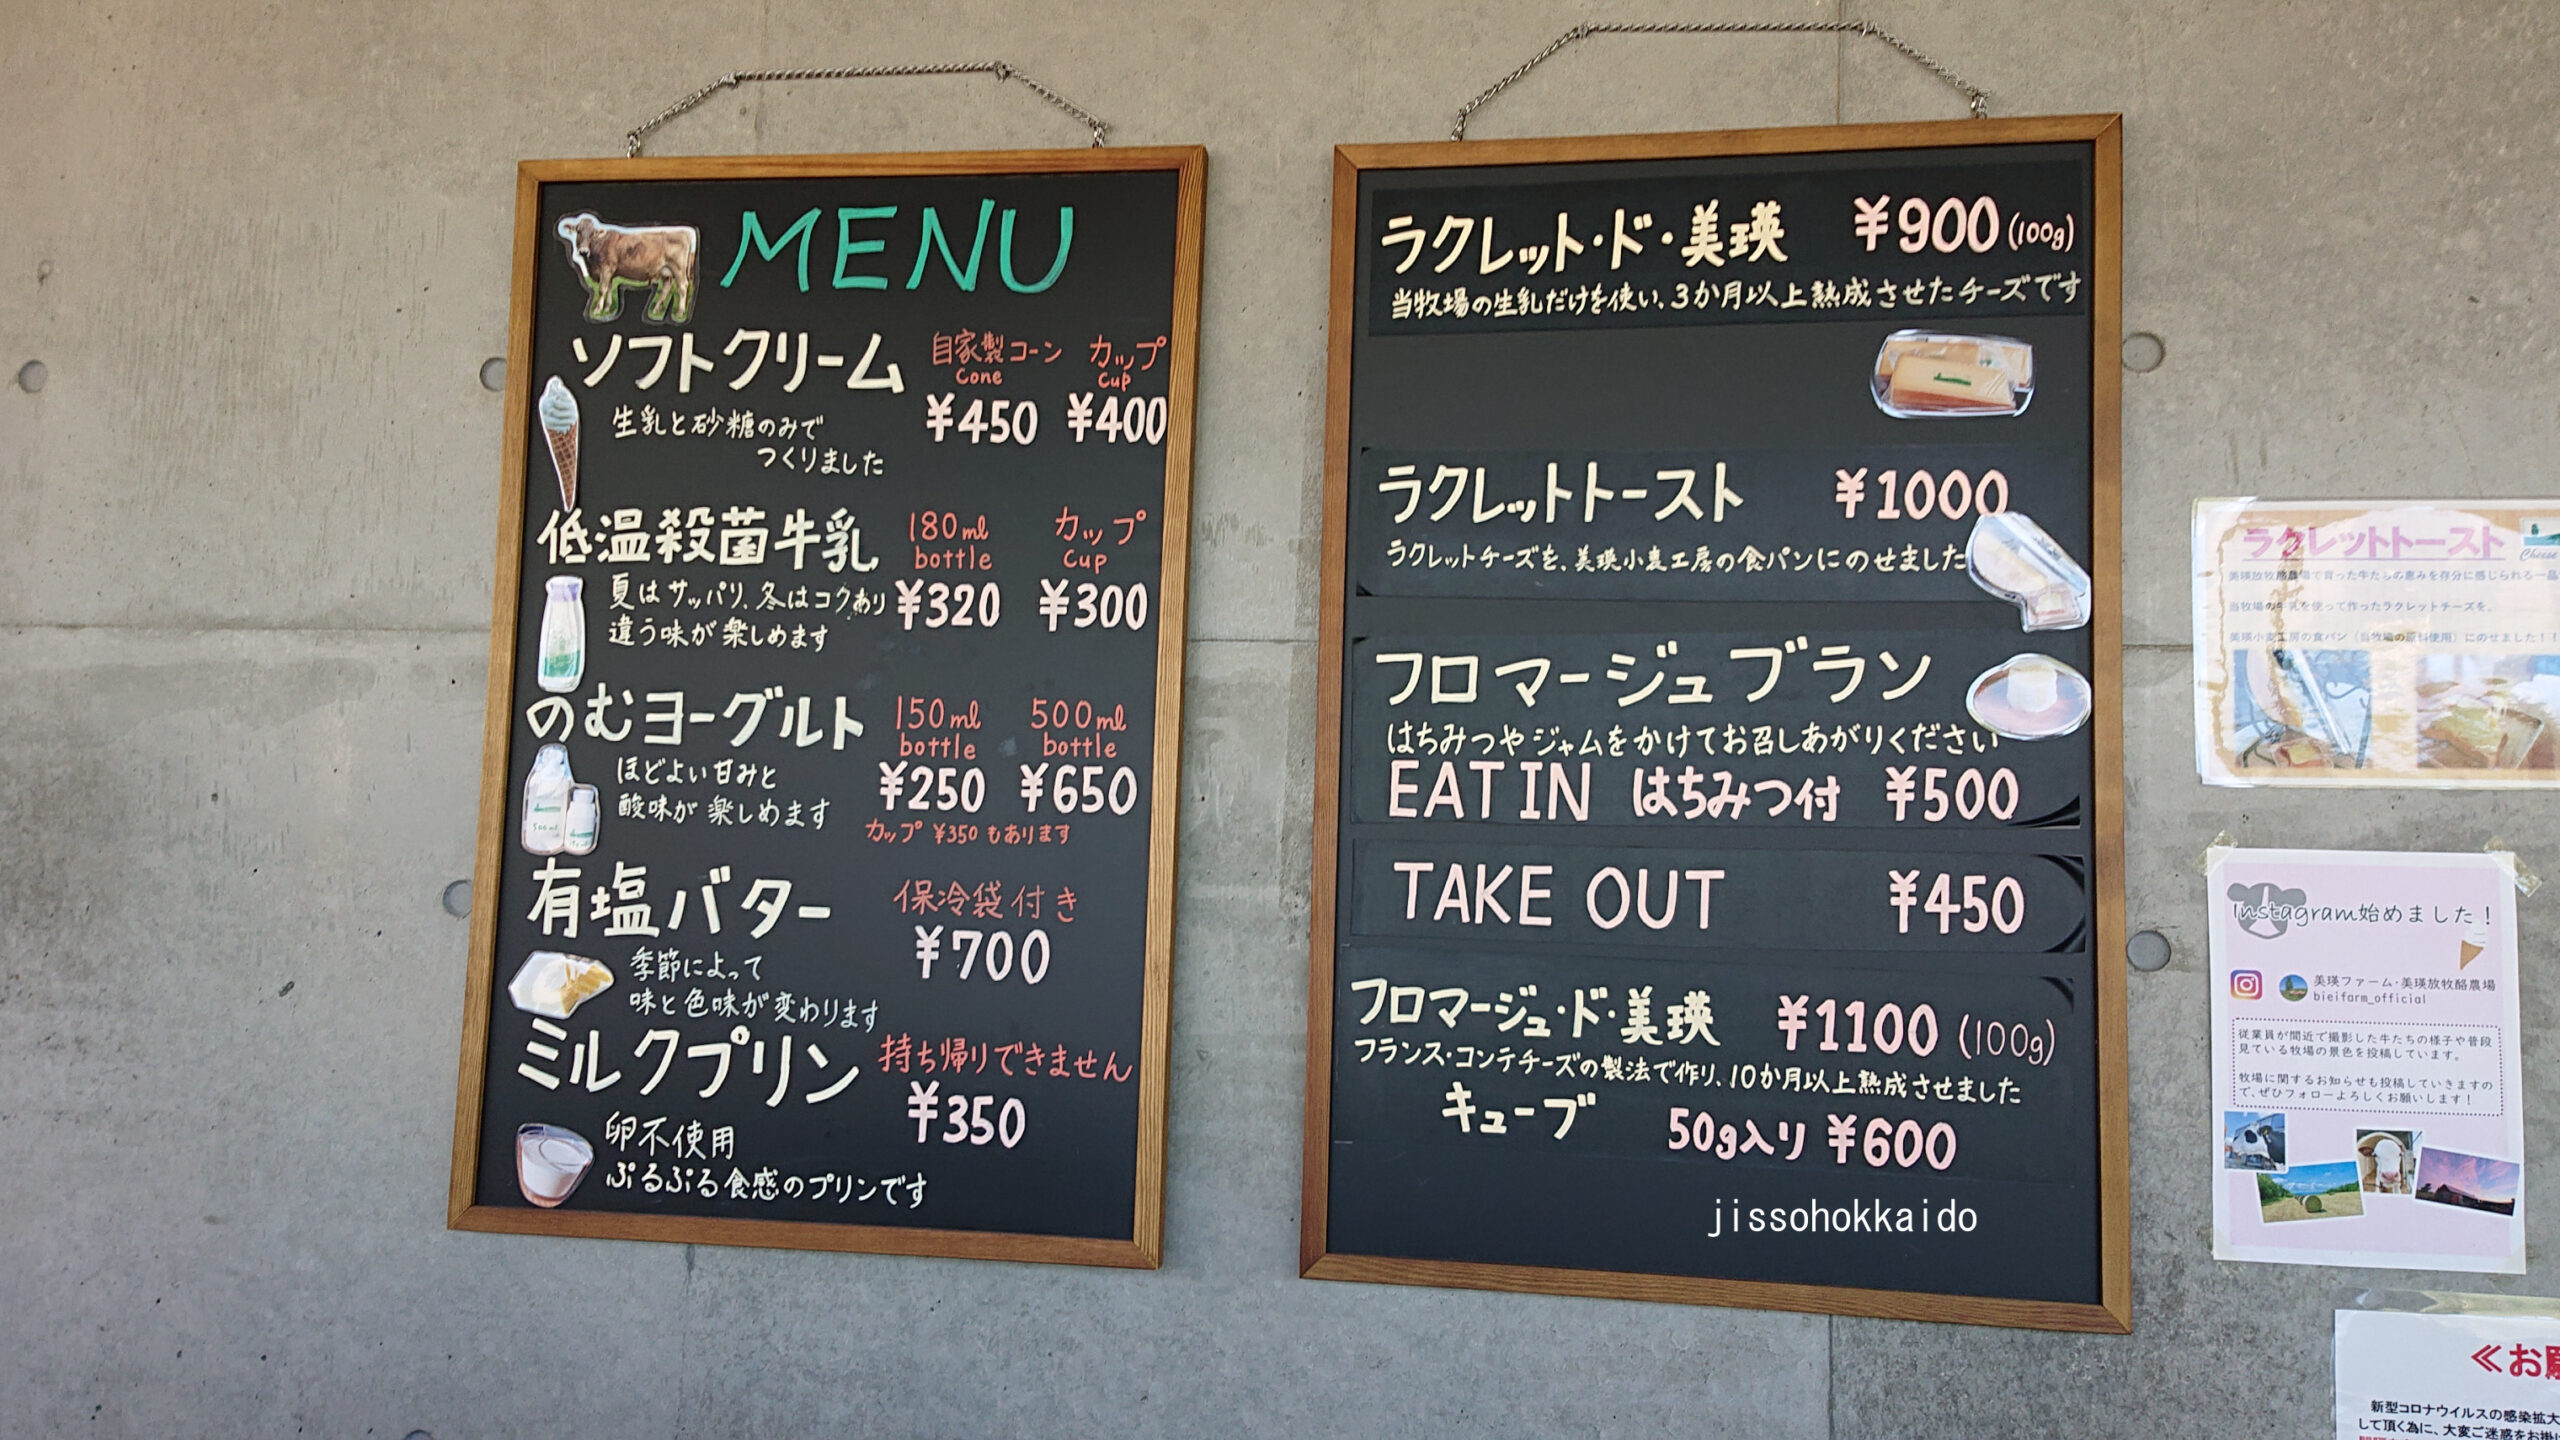 MENU
ソフトクリーム
自家製コーン カップ
Cone cup
¥450 ¥400
生乳と砂糖のみで
つくりました
低温殺菌牛乳
180ml カップ
bottle cup
¥320 ¥300
夏はサッパリ、冬はコクあり
違う味が楽しめます
のむヨーグルト
150ml 500ml
bottle bottle
¥250 ¥650
ほどよい甘みと
酸味が楽しめます
カップ ¥350 もあります
有塩バター
保冷袋付き
¥700
季節によって
味と色味が変わります
ミルクプリン
持ち帰りできません
¥350
卵不使用
ぷるぷる食感のプリンです
ラクレット・ド・美瑛 ¥900 (100g)
当牧場の生乳だけを使い、3か月以上熟成させたチーズです
ラクレットトースト ¥1000
ラクレットチーズを、美瑛小麦工房の食パンにのせました
フロマージュブラン
はちみつやジャムをかけてお召しあがりください
EAT IN はちみつ付 ¥500
TAKE OUT ¥450
フロマージュ・ド・美瑛 ¥1100 (100g)
フランス・コンテチーズの製法で作り、10か月以上熟成させました
キューブ 50g入り ¥600
jissohokkaido
ラクレットトースト
Cheese
美瑛放牧酪農場で育った牛たちの恵みを存分に感じられる一品
当牧場の牛乳を使って作ったラクレットチーズを、
美瑛小麦工房の食パン（当牧場の原料使用）にのせました！！
Instagram始めました！
美瑛ファーム・美瑛放牧酪農場
bieifarm_official
従業員が間近で撮影した牛たちの様子や普段
見ている牧場の景色を投稿しています。
牧場に関するお知らせも投稿していきますの
で、ぜひフォローよろしくお願いします！
≪お願
新型コロナウイルスの感染拡大
して頂く為に、大変ご迷惑をお掛け